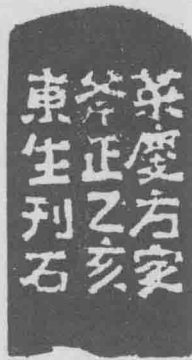 葉慶方家
斧正乙亥
東生刊石